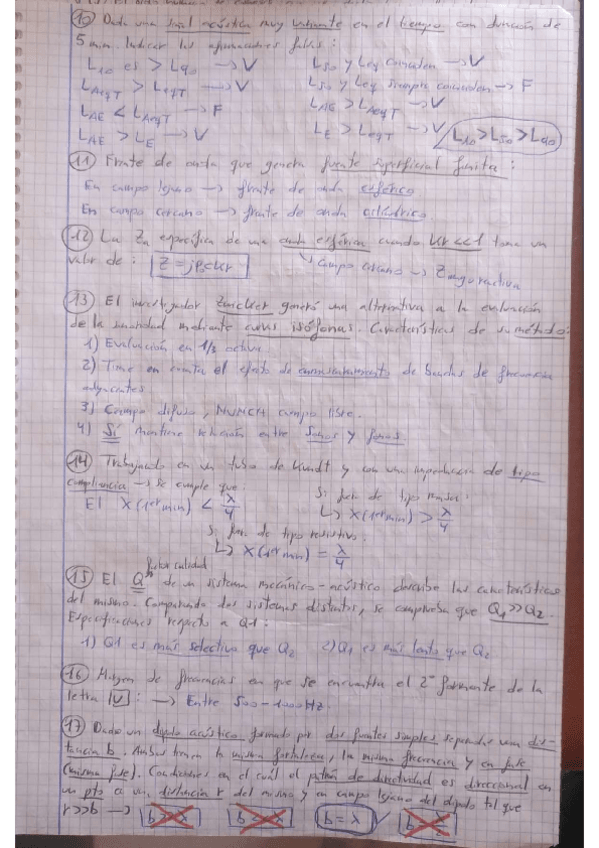 10 Dada una señal acústica muy variante en el tiempo con duración de
5 min. Indicar las afirmaciones falsas:
L10 es > L90 → V
L50 y Leq coinciden → V
LAeqT > LeqT → V
L50 y Leq siempre coinciden → F
LAE < LAeqT → F
LAE > LAeqT → V
LAE > LE → V
LE > LeqT → V
L10 > L50 > L90
11 Frente de onda que genera fuente superficial finita:
En campo lejano → frente de onda esférico
En campo cercano → frente de onda cilíndrico.
12 La Zn específica de una onda esférica cuando kr<<1 toma un
valor de: Z = jρckr
campo cercano → Z muy reactiva
13 El investigador Zwicker generó una alternativa a la evaluación
de la sonoridad mediante curvas isófonas. Características de su método:
1) Evaluación en 1/3 octava
2) Tiene en cuenta el efecto de enmascaramiento de bandas de frecuencia
adyacentes
3) Campo difuso, NUNCA campo libre.
4) Sí mantiene relación entre Sonos y fonos.
14 Trabajando en un tubo de Kundt y con una impedancia de tipo
compliancia → se cumple que:
El X(1er min) < λ/4
Si fuer de tipo masa:
↳ X(1er min) > λ/4
Si fuer. de tipo resistivo:
↳ X(1er min) = λ/4
factor calidad
15 El Q de un sistema mecánico-acústico describe las características
del mismo. Comparando dos sistemas distintos, se comprueba que Q1 >> Q2
Especificaciones respecto a Q1:
1) Q1 es más selectiva que Q2
2) Q1 es más lento que Q2
16 Margen de frecuencias en que se encuentra el 2º formante de la
letra |V|: → Entre 500-1000Hz.
17 Dado un dipolo acústico formado por dos fuentes simples separadas una dis-
tancia b. Ambas tienen la misma fortaleza, la misma frecuencia y en fase
(misma fase). Condiciones en el cuál el patrón de directividad es direccional en
un pto a una distancia r del mismo y en campo lejano del dipolo tal que
r>>b → b = λ ✓